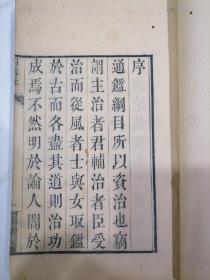 序
通鑑綱目所以資治也竊
謂主治者君輔治者臣受
治而從風者士與女取鑑
於古而各盡其道則治功
成焉不然明於論人闇於